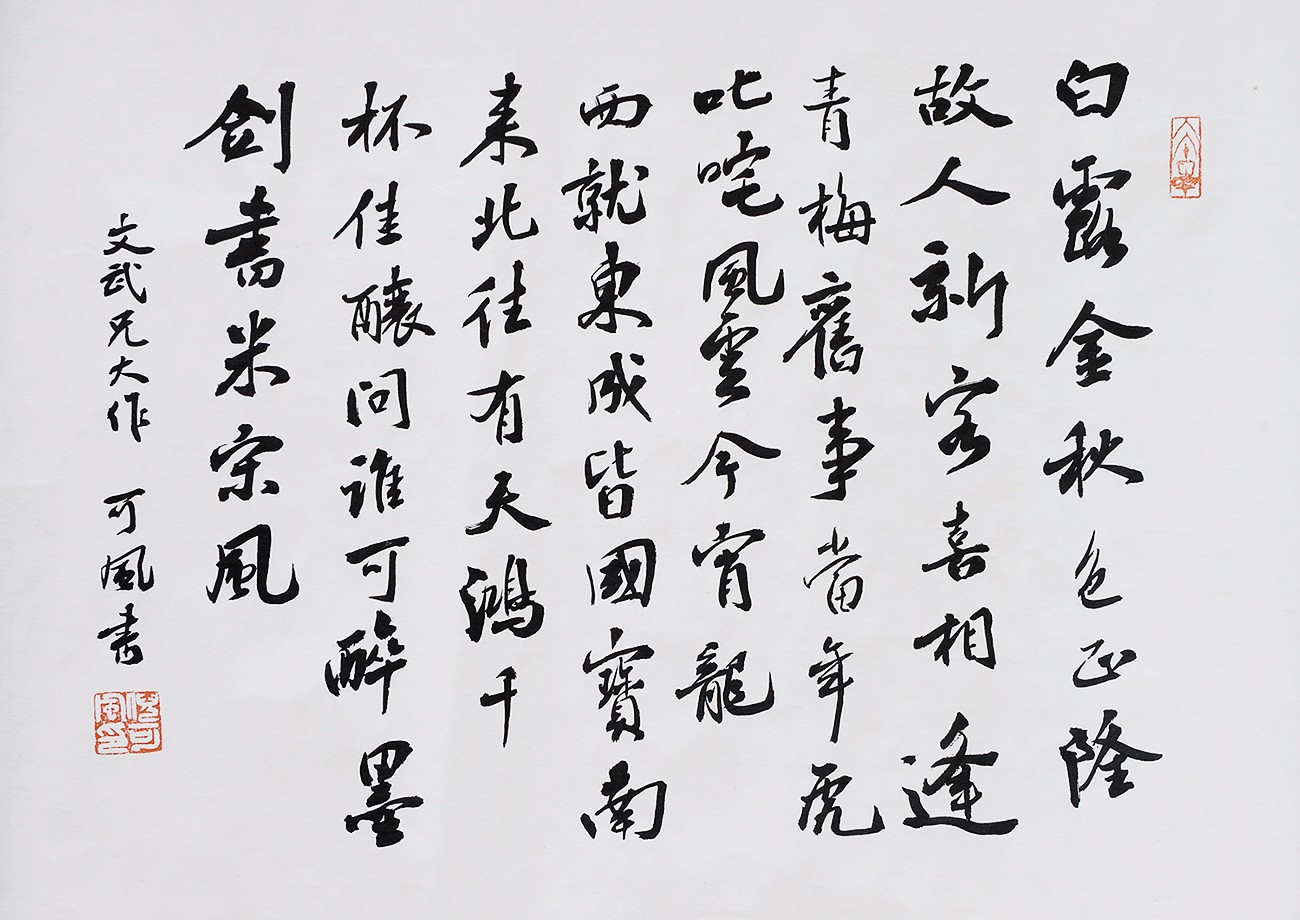 白露金秋色正隆
故人新客喜相逢
青梅舊事當年虎
叱咤風雲今宵龍
西就東成皆國寶南
来北往有天鴻千
杯佳釀問誰可醉墨
劍書米宗風
文武兄大作 可風书